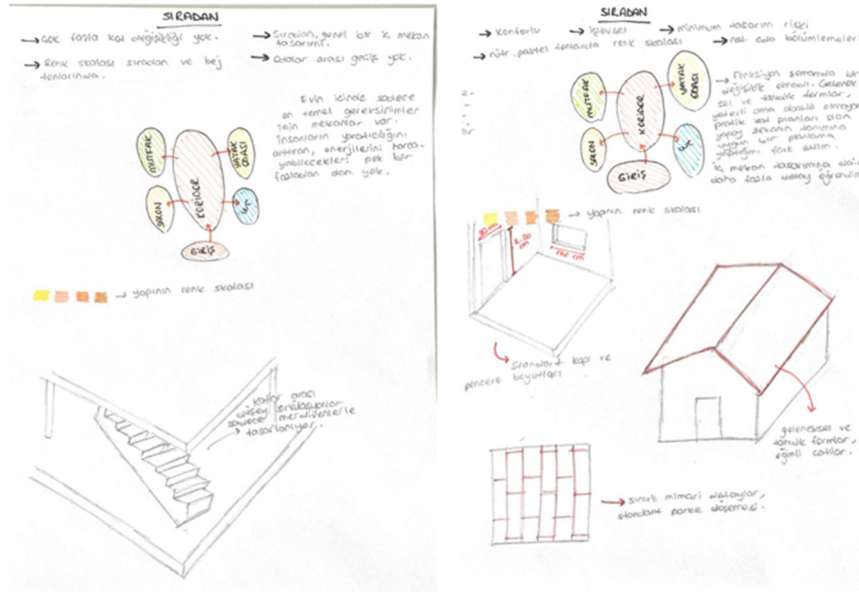 SIRADAN
→ Çok fazla kot değişikliği yok.
→ Sıradan, genel bir iç mekan
tasarımı.
→ Renk skalası sıradan ve bej
tonlarında.
→ Odalar arası geçiş yok.
Evin içinde sadece
en temel gereksinimler
için mekanlar var.
İnsanların yaratıcılığını
artıran, enerjilerini harca-
yabilecekleri pek bir
fazladan alan yok.
MUTFAK
YATAK
ODASI
KORİDOR
SALON
GİRİŞ
→ yapının renk skalası
Katlar arası
düşey sirkülasyonlar
sadece merdivenlerle
tasarlanıyor.
SIRADAN
→ Konforlu
→ İşlevsel
→ minimum tasarım riski
→ nötr, pastel tonlarda renk skalası
→ net oda bölümlemeleri
MUTFAK
YATAK
ODASI
KORİDOR
SALON
GİRİŞ
→ Fonksiyon şemamda bir
değişiklik olmadı. Gelenek-
sel ve tanıdık formlar,
yeterli ama abartılı olmayan
pratik kat planları olan
yapay zekanın tanımına
uygun bir planlama
yaptığımı fark ettim.
İç mekan tasarımına dair
daha fazla detay öğrendim
→ yapının renk skalası
90 cm
2.20
cm
140 cm
standart kapı ve
pencere boyutları
geleneksel ve
tanıdık formlar,
eğimli çatılar.
→ sınırlı mimari detaylar,
standart parke döşemesi.